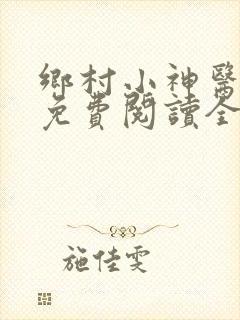 鄉村小神醫
免費閱讀全
施佳雯